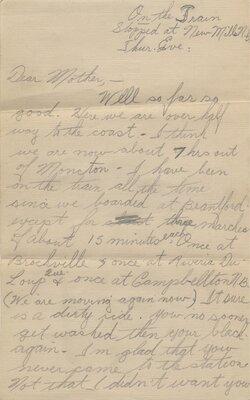 On the Train
Stopped at New Mills N.B.
Thur. Eve.
Dear Mother,—
Well so far so
good. Here we are over half
way to the coast - I think
we are now about 7 hrs out
of Moncton - I have been
on the train all the time
since we boarded at Brantford
except for three marches
of about 15 minutes each. Once at
Brockville & once at Riveria De.
Loup & once at Campbellton N.B.
(We are moving again now) It sure
is a dirty ride. You no sooner
get washed then your black
again - I'm glad that you
never came to the station
Not that I didn't want you